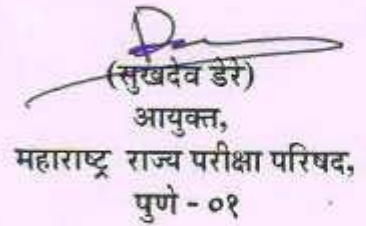 (सुखदेव डेरे)
आयुक्त,
महाराष्ट्र राज्य परीक्षा परिषद,
पुणे - ०१